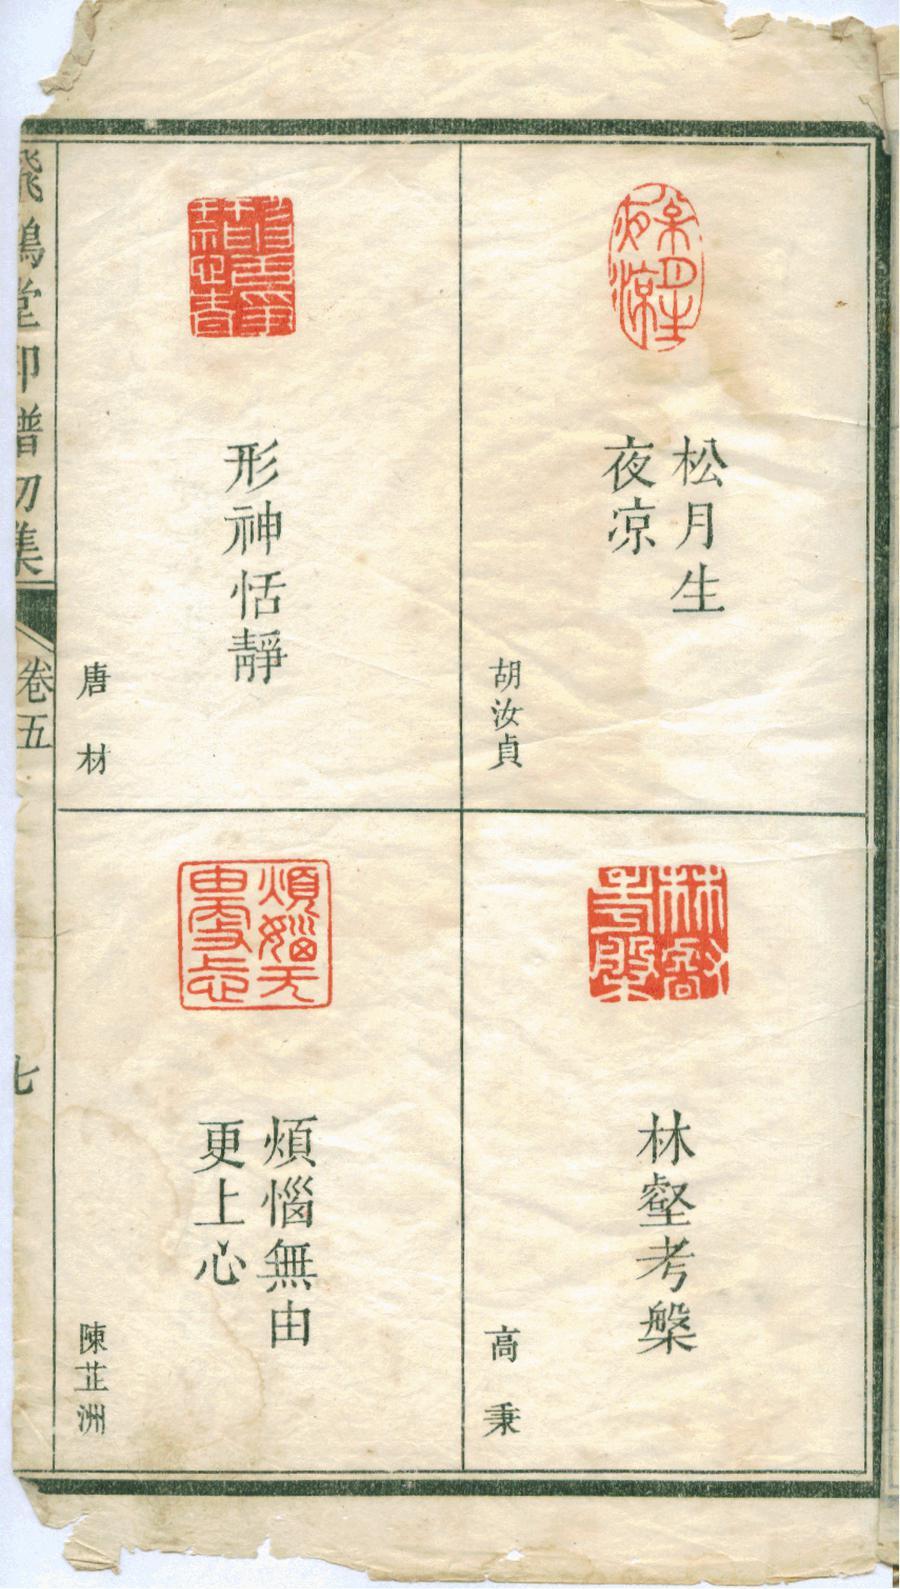 松月生
夜凉
胡汝貞
林壑考槃
高秉
形神恬靜
唐材
煩惱無由
更上心
陳芷洲
飛鴻堂印譜初集
卷五
七